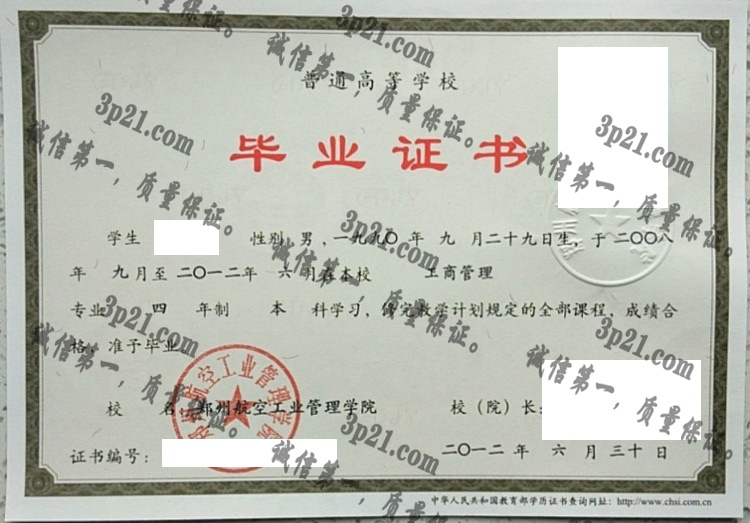 普通高等学校
毕业证书
学生 性别 男，一九九〇年 九 月二十九日生，于二〇〇八
年 九月至二〇一二年 六月在本校 工商管理
专业 四 年制 本 科学习，修完教学计划规定的全部课程，成绩合
格，准予毕业。
校 名：郑州航空工业管理学院 校（院）长：
证书编号： 二〇一二年 六 月 三十 日
中华人民共和国教育部学历证书查询网址：http://www.chsi.com.cn
郑州航空工业管理学院
3p21.com
诚信第一，质量保证。
3p21.com
诚信第一，质量保证。
3p21.com
诚信第一，质量保证。
3p21.com
诚信第一，质量保证。
3p21.com
诚信第一，质量保证。
3p21.com
诚信第一，质量保证。
3p21.com
诚信第一，质量保证。
3p21.com
诚信第一，质量保证。